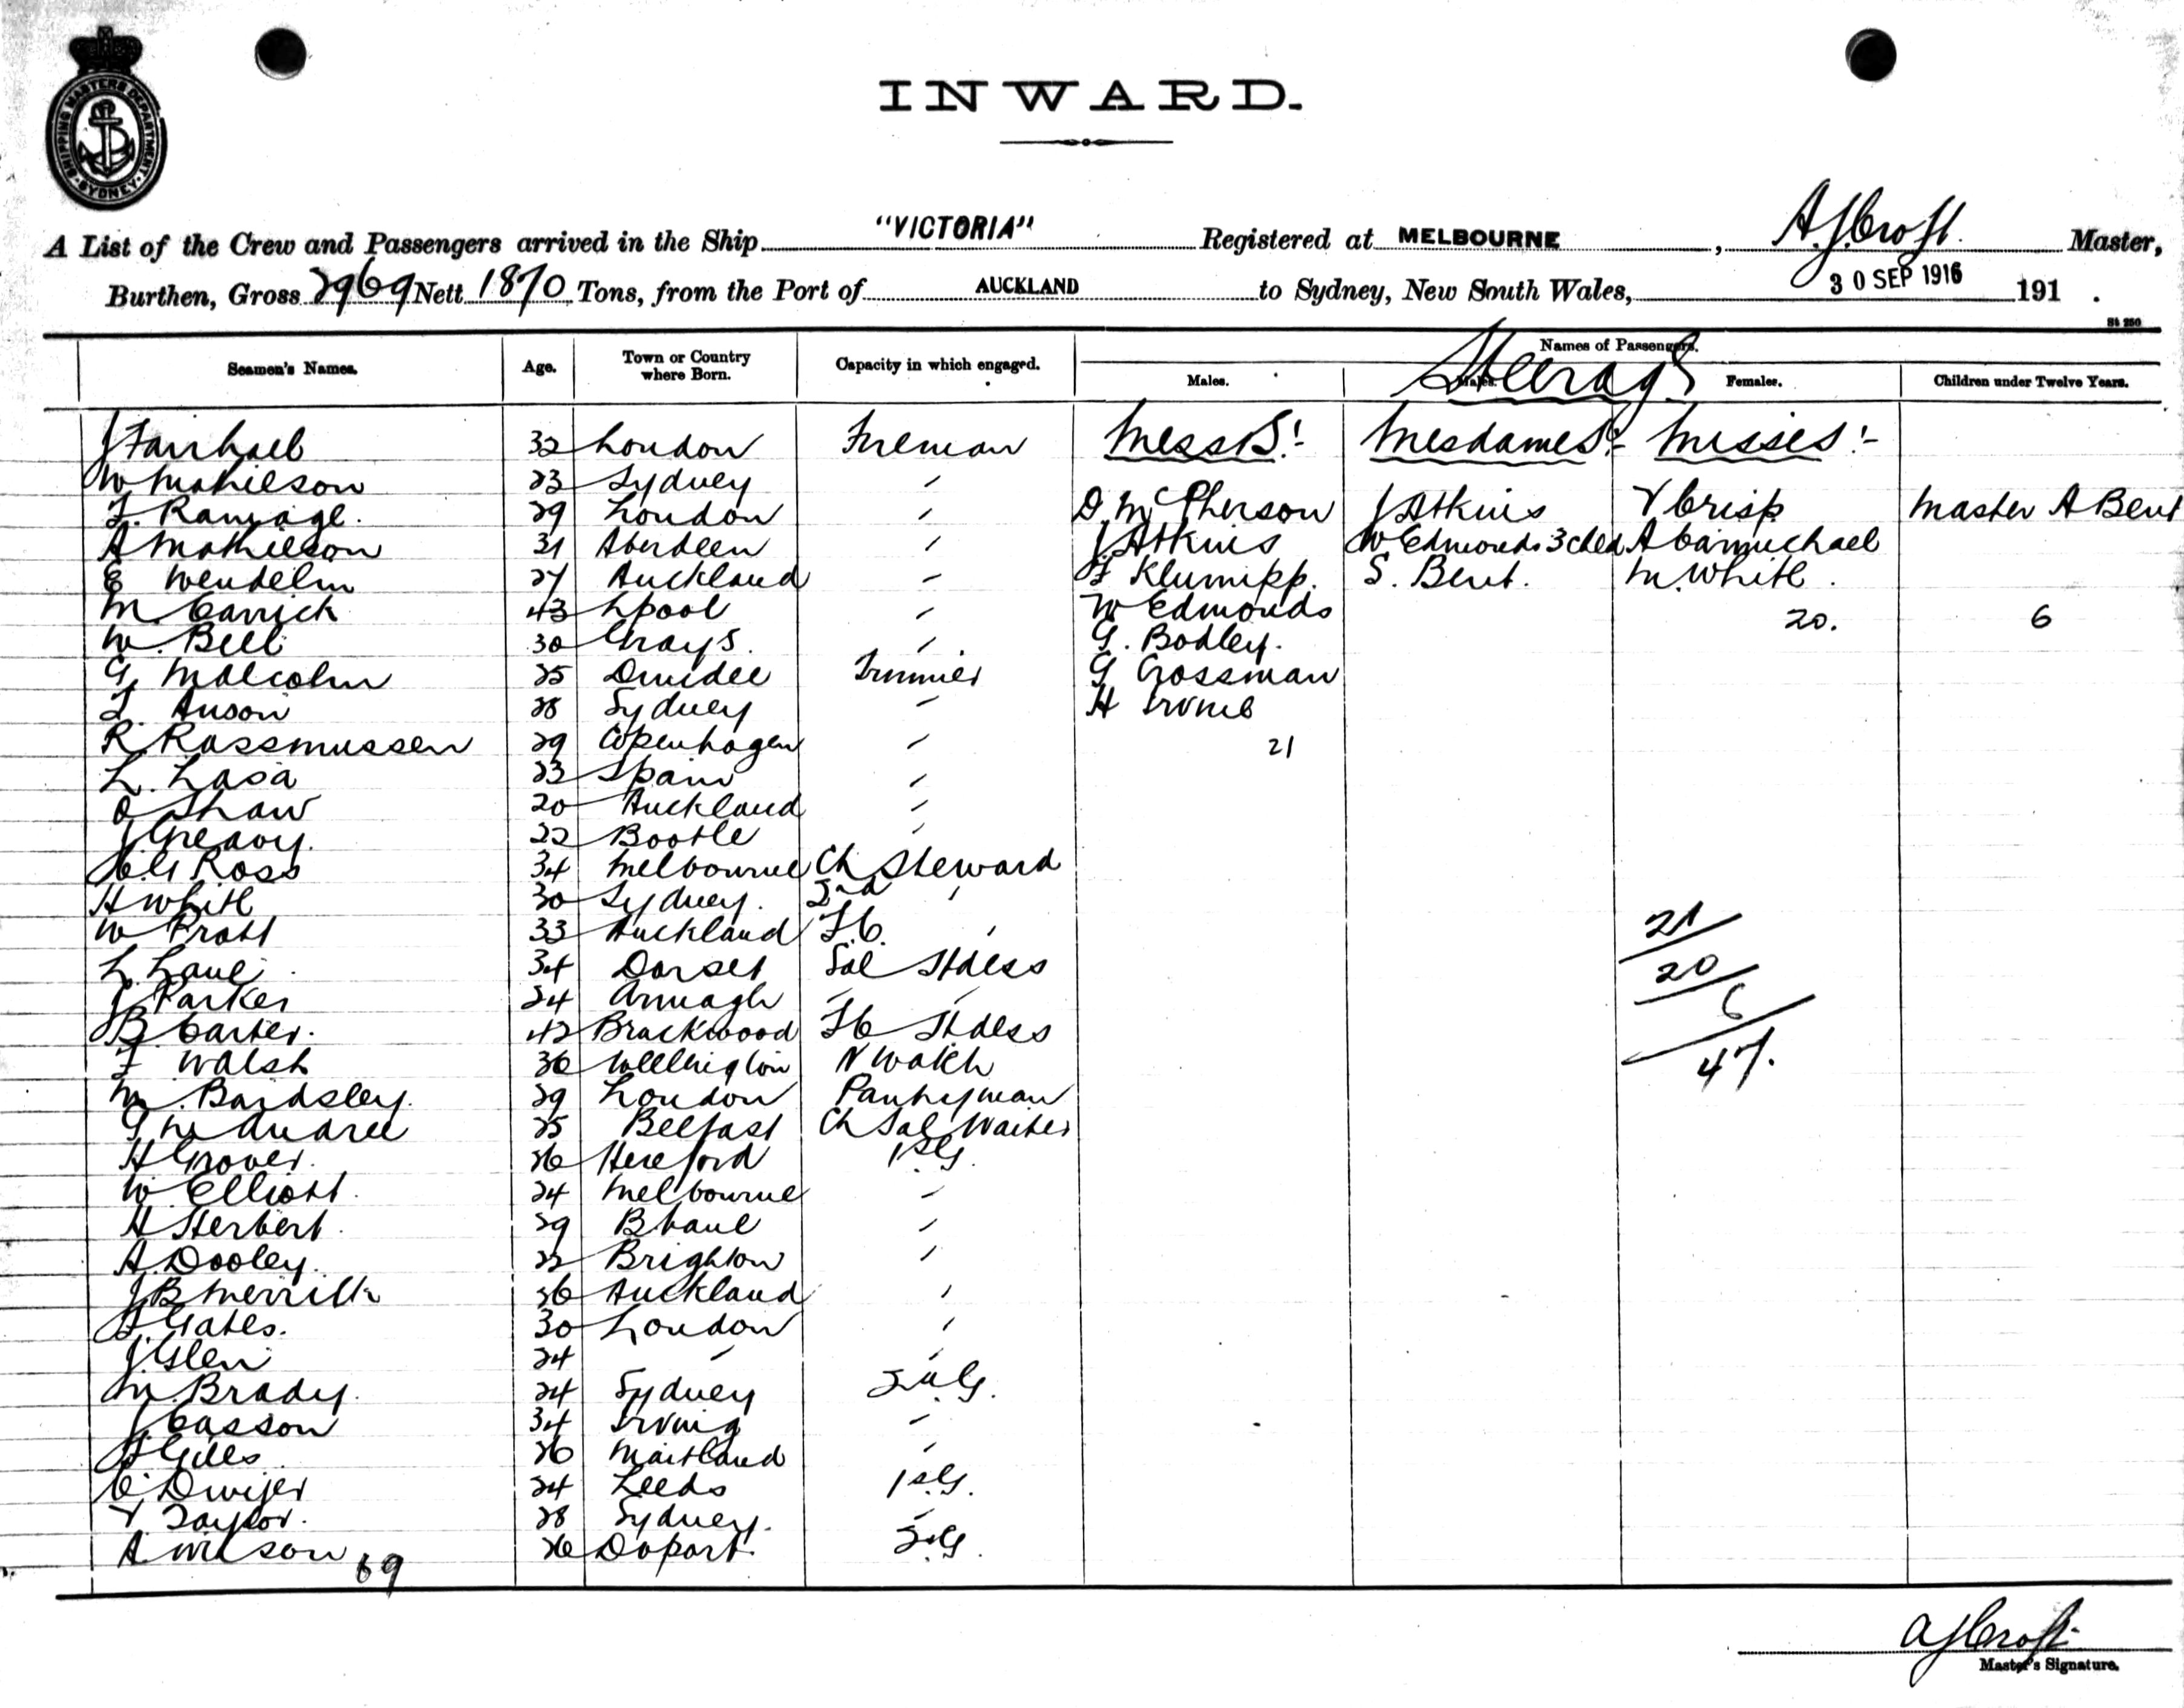 SHIPPING MASTERS DEPARTMENT SYDNEY
INWARD.
A List of the Crew and Passengers arrived in the Ship "VICTORIA" Registered at MELBOURNE, A J Croft. Master,
Burthen, Gross 2969 Nett 1870 Tons, from the Port of AUCKLAND to Sydney, New South Wales, 30 SEP 1916 191 .
St 250
Seamen's Names. Age. Town or Country where Born. Capacity in which engaged. Names of Passengers. Steerage
Males. Males. Females. Children under Twelve Years.
J Fairhall 32 London Fireman Messrs:- Mesdames:- Misses:-
W Mathieson 23 Sydney "
F. Ramage. 29 London " D McPherson J Atkins V Crisp Master A Bent
A Mathieson 31 Aberdeen " J Atkins W Edmonds 3 chld A Carmichael
E Wendelin 27 Auckland " F Klumipp. S. Bent. M. White.
M Carrick 43 Lpool " W Edmonds 20. 6
W. Bell 30 Grays. " G. Bodley.
G Malcolm 25 Dundee Trimmer G Crossman
F. Anson 28 Sydney " H Irvine
R Rassmussen 29 Copenhagen " 21
L. Lasa 23 Spain "
O Shaw 20 Auckland "
J. Greavy. 22 Bootle "
H. G Ross 34 Melbourne Ch Steward
H White 30 Sydney. 2nd "
W Pratt 33 Auckland F.C. " 21
L. Lane 34 Dorset Sal Stdess 20
J Parker 24 Armagh " " 6
B. Carter. 42 Brackwood F C Stdess
F Walsh 36 Wellington N Watch 47.
M. Bardsley. 29 London Pantryman
G McAuaree 25 Belfast Ch Sal Waiter
H Grover. 26 Hereford 1st G.
W Elliott. 24 Melbourne "
H Herbert. 29 Bbane "
A. Dooley. 22 Brighton "
J B Merrill 36 Auckland "
F. Gates. 30 London "
J. Glen 24 " "
M. Brady. 24 Sydney 2nd G.
J Casson 34 Irving "
F Gilles 26 Maitland "
C. Dwyer 24 Leeds 1st G.
V. Taylor. 28 Sydney. "
A Wilson 26 Doport. 2nd G.
69
A J Croft
Master's Signature.